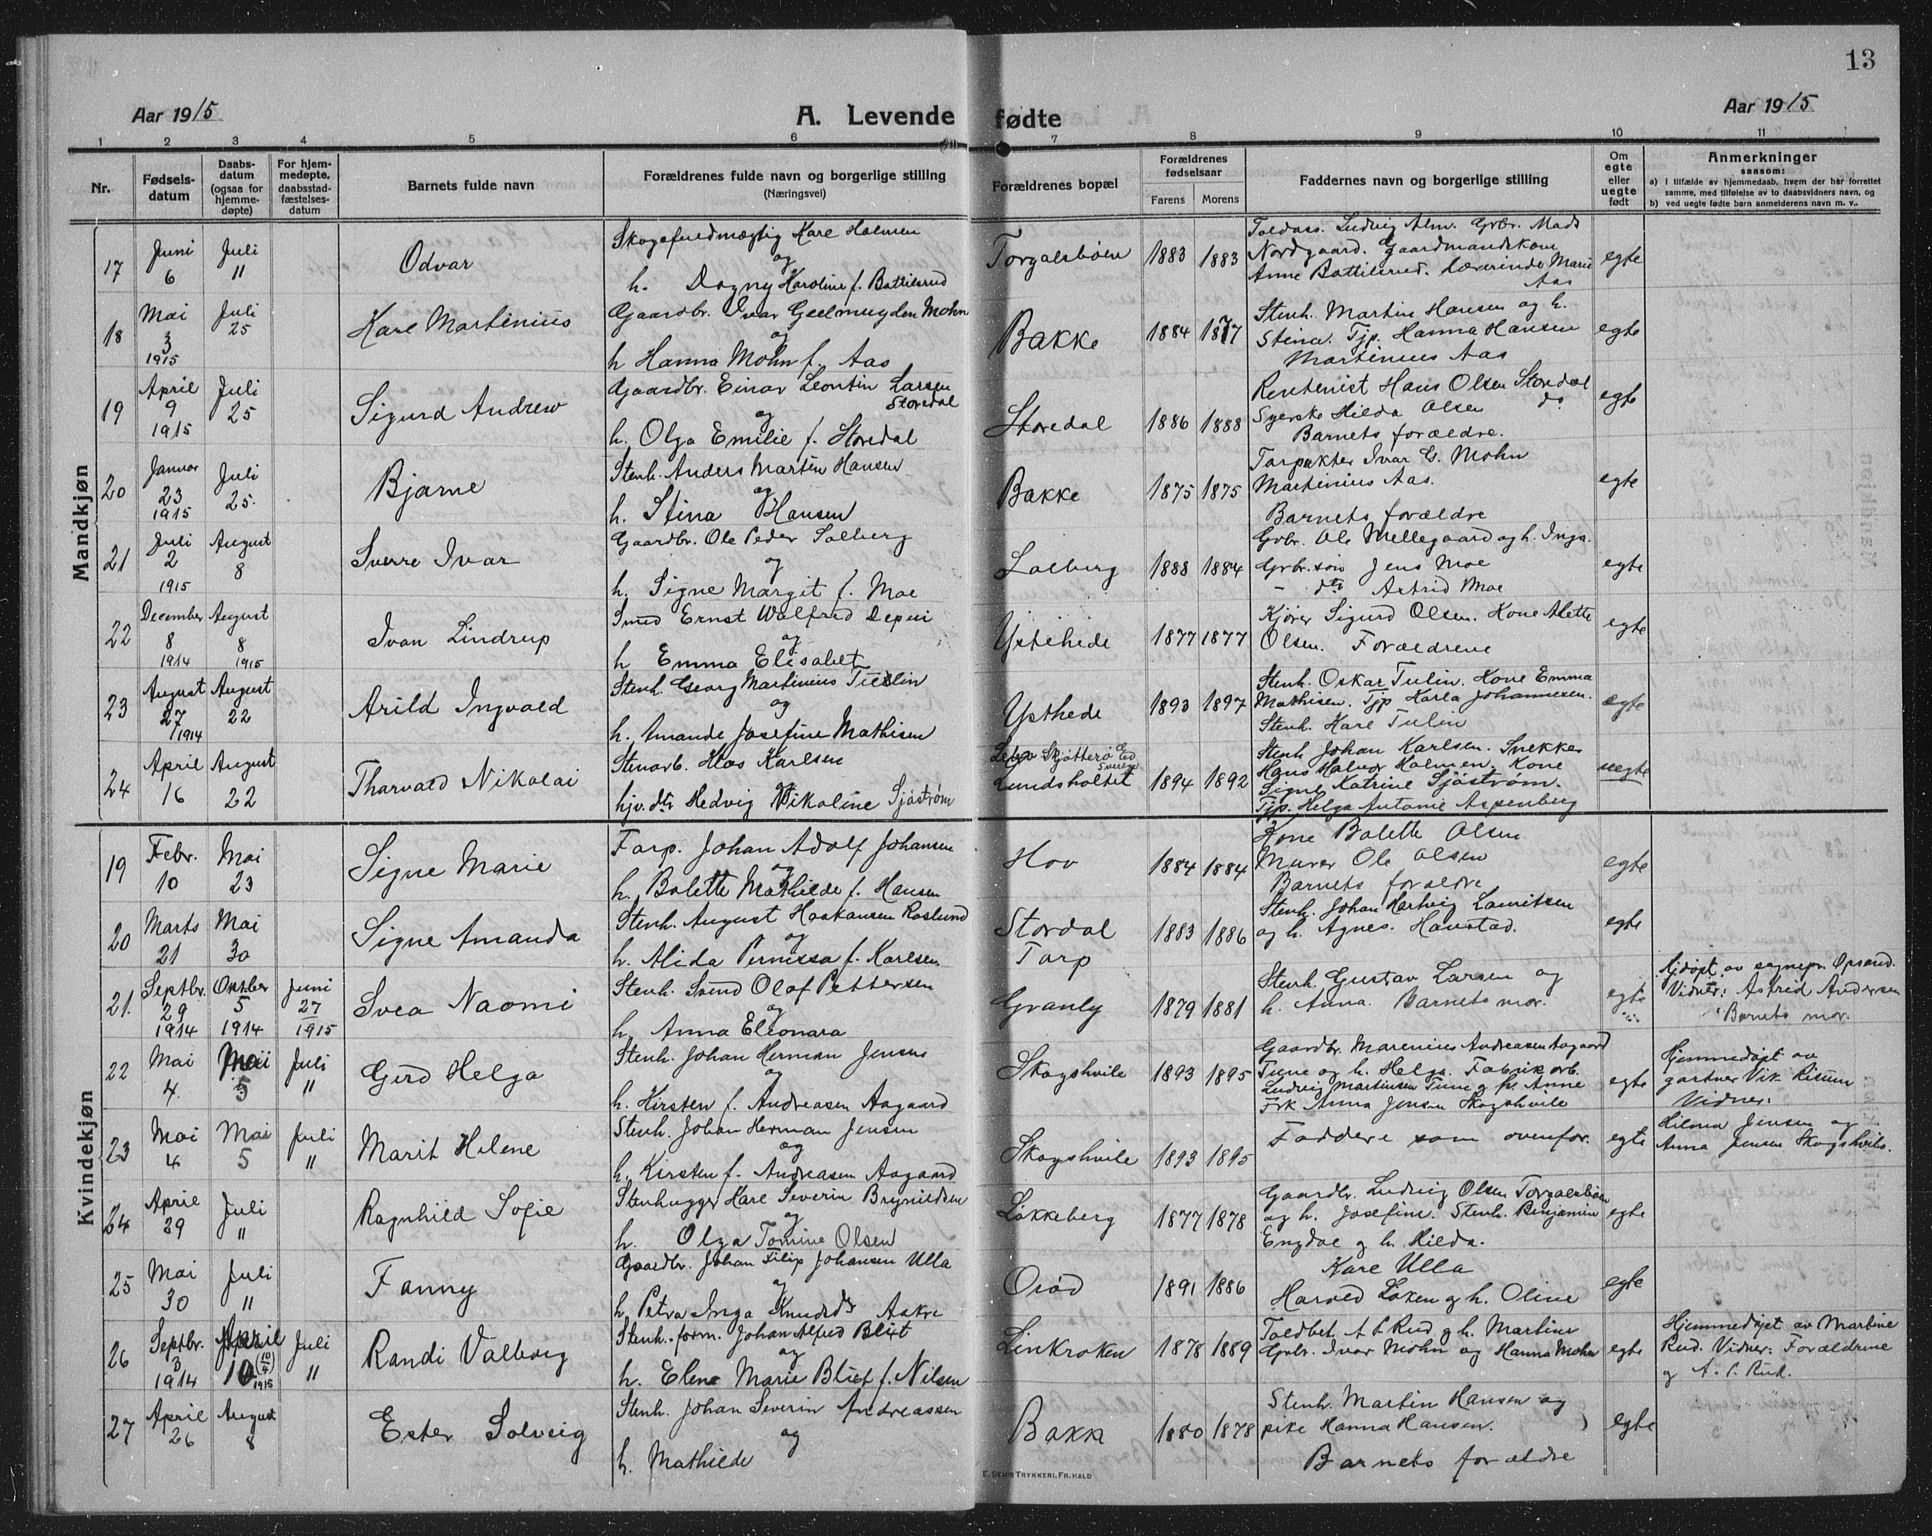 13
Aar 1915 A. Levende fødte Aar 1915
1 2 3 4 5 6 7 8 9 10 11
Nr.
Fødsels-
datum
Daabs-
datum
(ogsaa for
hjemme-
døpte)
For hjem-
medøpte,
daabsstad-
fæstelses-
datum
Barnets fulde navn
Forældrenes fulde navn og borgerlige stilling
(Næringsvei)
Forældrenes bopæl
Forældrenes
fødselsaar
Farens Morens
Faddernes navn og borgerlige stilling
Om
egte
eller
uegte
født
Anmerkninger
saasom:
a) i tilfælde av hjemmedaab, hvem der har forrettet
samme, med tilføielse av to daabsvidners navn, og
b) ved uegte fødte barn anmelderens navn m. v.
Mandkjøn
17 Juni 6 Juli 11
Odvar
Skogsfuldmægtig Kare Holmen
og
h. Dagny Karoline f. Battilsrud
Torgalsbøen 1883 1883
Toldass. Ludvig Alm. Grbr. Mads
Nordgaard. Gaardmandskone
Anne Battilsrud. Lærerinde Marie
Aas
egte
18 Mai 3 1915 Juli 25
Kare Martinius
Gaardbr. Ivar Geelmuyden Mohn
og
h Hanna Mohn f. Aas
Bakke 1884 1877
Stenh. Martin Hansen og h.
Stina. Tjp. Hanna Hansen
Martinius Aas
egte
19 April 9 1915 Juli 25
Sigurd Andrew
Gaardbr. Einar Leontin Larsen
Storedal
og
h. Olga Emilie f. Storedal
Storedal 1886 1888
Rentenist Hans Olsen Storedal
Syerske Hilda Olsen do
Barnets forældre.
egte
20 Januar 23 1915 Juli 25.
Bjarne
Stenh. Anders Martin Hansen
og
h. Stina Hansen
Bakke 1875 1875
Forpakter Ivar G. Mohn
Martinius Aas.
Barnets forældre
egte
21 Juli 2 1915 August 8
Sverre Ivar
Gaardbr. Ole Peder Solberg
og
h. Signe Margit f. Moe
Solberg 1888 1884
Grbr. Ole Mellegaard og h. Inga.
Grbr. søn Jens Moe
- dtr Astrid Moe
egte
22 December 8 1914 August 8 1915
Ivan Lindrup
Smed Ernst Walfred Depui
og
h Emma Elisabet
Ystehede 1877 1877
Kjører Sigurd Olsen. Kone Alette
Olsen. Forældrene
egte
23 August 27/1914 August 22
Arild Ingvald
Stenh. Georg Martinius Tuelin
og
h. Amande Josefine Mathisen
Ysthede 1893 1897
Stenh. Oskar Tulin. Kone Emma
Mathisen. Tjp Karla Johannesen.
Stenh. Kare Tulin
egte
24 April 16 August 22
Tharvald Nikolai
Stenarb. Klas Karlsen
og
hjv. dtr Hedvig Nikoline Sjøstrøm
Skjötterö Ed
Sverige
Lundsholtet 1894 1892
Stenh Johan Karlsen. Snekker
Hans Halvor Holmen. Kone
Signe Katrine Sjöstrøm.
Tjp. Helga Antonie Aspenberg
uegte
Kvindekjøn
19 Febr. 10 Mai 23
Signe Marie
Forp. Johan Adolf Johansen
og
h. Bolette Mathilde f. Hansen
Hov 1884 1884
Kone Bolette Olsen
Murer Ole Olsen
Barnets forældre
egte
20 Marts 21 Mai 30
Signe Amanda
Stenh. August Haakansen Roslund
og
h. Alida Pernissa f. Karlsen
Stordal
Torp 1883 1886
Stenh. Johan Hartvig Lauritsen
og h. Agnes. Haustad.
egte
21. Septbr. 29 1914 Oktber 5 1914 Juni 27 1915
Svea Naomi
Stenh. Svend Olof Pettersen
og
h. Anna Eleonara
Granly 1879 1881
Stenh. Gustav Larsen og
h. Anna. Barnets mor.
egte
Hjdøpt av sognepr. Opsand.
Vidner: Astrid Andersen
Barnets mor.
22 Mai 4. Mai 5 Juli 11
Gerd Helga
Stenh. Johan Herman Jensen
og
h. Kirsten f. Andreasen Aagaard
Skogshvile 1893 1895
Gaardbr. Marenius Andreasen Aagaard
Tune og h. Helga. Fabrikarb.
Ludvig Martinsen Tune og h. Anne
Frk Anna Jensen Skogshvile
egte
Hjemmedøpt av
gartner Vik Risum
Vidner:
23 Mai 4 Mai 5 Juli 11
Marit Helene
Stenh. Johan Herman Jensen
og
h. Kirsten f. Andreasen Aagaard
Skogshvile 1893 1895
Faddere som ovenfor.
egte
Hilma Jensen og
Anna Jensen Skogshvile.
24 April 29 Juli 11
Ragnhild Sofie
Stenhugger Kare Severin Brynildsen
og
h. Olga Tomine Olsen
Lokkeberg 1877 1878
Gaardbr. Ludvig Olsen Torgalsbøen
og h. Josefine. Stenh. Benjamin
Engdal og h. Hilda.
egte
25 Mai 30 Juli 11
Fanny
Gaardbr. Johan Filip Johansen Ulla
og
h. Petra Inga Knudsdr Aakre
Orød 1891 1886
Kare Ulla
Harald Løken og h. Oline
egte
26 Septbr. 3 1914 April 10 (10/4) 1915 Juli 11
Randi Valborg
Stenh. form. Johan Alfred Blixt
og
h. Elena Marie Blixt f. Nilsen
Linkroken 1878 1889
Toldbet. A. C. Rud og h. Martine
Grbr. Ivar Mohn og Hanna Mohn
egte
Hjemmedøpt av Martine
Rud. Vidner: Forældrene
og A. C. Rud.
27 April 26 August 8
Ester Solveig
Stenh. Johan Severin Andreassen
og
h. Mathilde
Bakke 1880 1878
Stenh. Martin Hansen og
pike Hanna Hansen.
Barnets forældre
egte
E. Sem's Trykkeri, Fr.hald